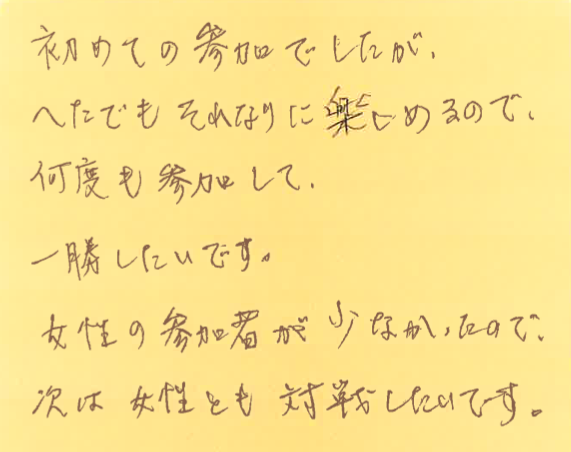 初めての参加でしたが、
へたでもそれなりに楽しめるので、
何度も参加して、
一勝したいです。
女性の参加者が少なかったので、
次は女性とも対戦したいです。